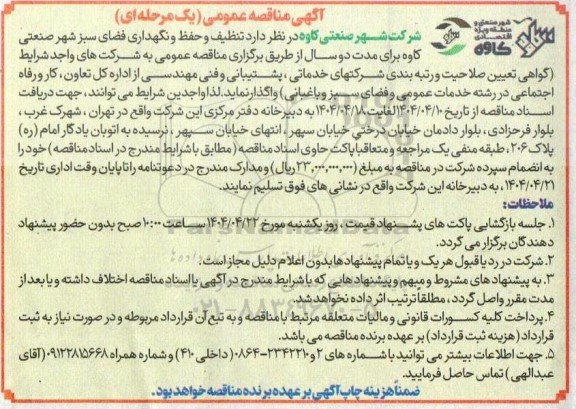 آگهی مناقصه عمومی (یک مرحله‌ای)
شهر صنعتی و
منطقه ویژه
اقتصادی
کاوه
شرکت شهر صنعتی کاوه در نظر دارد تنظیف و حفظ و نگهداری فضای سبز شهر صنعتی
کاوه برای مدت دو سال از طریق برگزاری مناقصه عمومی به شرکت های واجد شرایط
(گواهی تعیین صلاحیت و رتبه بندی شرکتهای خدماتی، پشتیبانی و فنی مهندسی از اداره کل تعاون، کار و رفاه
اجتماعی در رشته خدمات عمومی و فضای سبز و باغبانی) واگذار نماید. لذا واجدین شرایط می توانند، جهت دریافت
اسناد مناقصه از تاریخ ۱۴۰۴/۰۴/۱۰ لغایت ۱۴۰۴/۰۴/۱۸ به دبیرخانه دفتر مرکزی این شرکت واقع در تهران، شهرک غرب،
بلوار فرحزادی، بلوار دادمان خیابان درختی خیابان سپهر، انتهای خیابان سپهر، نرسیده به اتوبان یادگار امام (ره)
پلاک ۲۰۶، طبقه منفی یک مراجعه و متعاقبا پاکت حاوی اسناد مناقصه (مطابق با شرایط مندرج در اسناد مناقصه) خود را
به انضمام سپرده شرکت در مناقصه به مبلغ (۲۳,۰۰۰,۰۰۰,۰۰۰ ریال) و مدارک مندرج در دعوتنامه را تا پایان وقت اداری تاریخ
۱۴۰۴/۰۴/۲۱، به دبیرخانه این شرکت واقع در نشانی های فوق تسلیم نمایند.
ملاحظات:
۱. جلسه بازگشایی پاکت های پیشنهاد قیمت، روز یکشنبه مورخ ۱۴۰۴/۰۴/۲۲ ساعت ۱۰:۰۰ صبح بدون حضور پیشنهاد
دهندگان برگزار می گردد.
۲. شرکت در رد یا قبول هر یک و یا تمام پیشنهادها بدون اعلام دلیل مجاز است.
۳. به پیشنهادهای مشروط و مبهم و پیشنهادهایی که با شرایط مندرج در آگهی یا اسناد مناقصه اختلاف داشته و یا بعد از
مدت مقرر واصل گردد، مطلقا ترتیب اثر داده نخواهد شد.
۴. پرداخت کلیه کسورات قانونی و مالیات متعلقه مرتبط با مناقصه و به تبع آن قرارداد مربوطه و در صورت نیاز به ثبت
قرارداد (هزینه ثبت قرارداد) بر عهده برنده مناقصه می باشد.
۵. جهت اطلاعات بیشتر می توانید با شماره های ۲ و ۲۳۴۲۲۱۰-۰۸۶۴ (داخلی ۴۱۰) و شماره همراه ۰۹۱۲۲۸۱۵۶۶۸ (آقای
عبدالهی) تماس حاصل فرمایید.
ضمناً هزینه چاپ آگهی بر عهده برنده مناقصه خواهد بود.